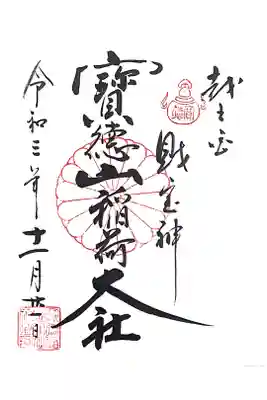 財宝神
寶徳山稲荷大社
令和三年十一月廿一日